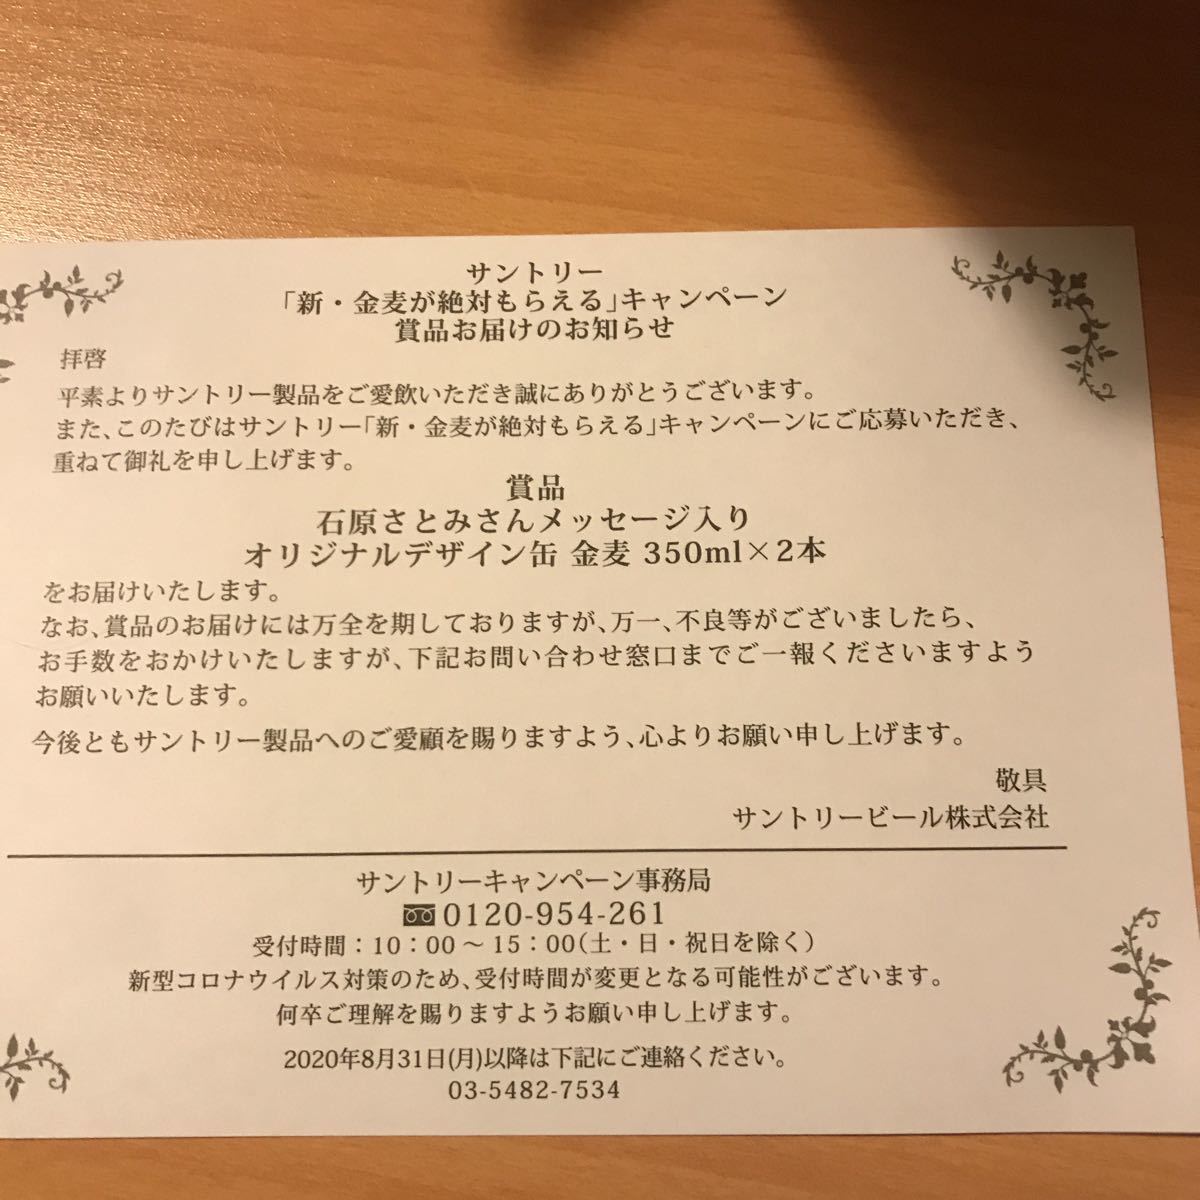 サントリー
「新・金麦が絶対もらえる」キャンペーン
賞品お届けのお知らせ
拝啓
平素よりサントリー製品をご愛飲いただき誠にありがとうございます。
また、このたびはサントリー「新・金麦が絶対もらえる」キャンペーンにご応募いただき、
重ねて御礼を申し上げます。
賞品
石原さとみさんメッセージ入り
オリジナルデザイン缶 金麦 350ml×2本
をお届けいたします。
なお、賞品のお届けには万全を期しておりますが、万一、不良等がございましたら、
お手数をおかけいたしますが、下記お問い合わせ窓口までご一報くださいますよう
お願いいたします。
今後ともサントリー製品へのご愛顧を賜りますよう、心よりお願い申し上げます。
敬具
サントリービール株式会社
サントリーキャンペーン事務局
0120-954-261
受付時間：10：00～15：00（土・日・祝日を除く）
新型コロナウイルス対策のため、受付時間が変更となる可能性がございます。
何卒ご理解を賜りますようお願い申し上げます。
2020年8月31日(月)以降は下記にご連絡ください。
03-5482-7534